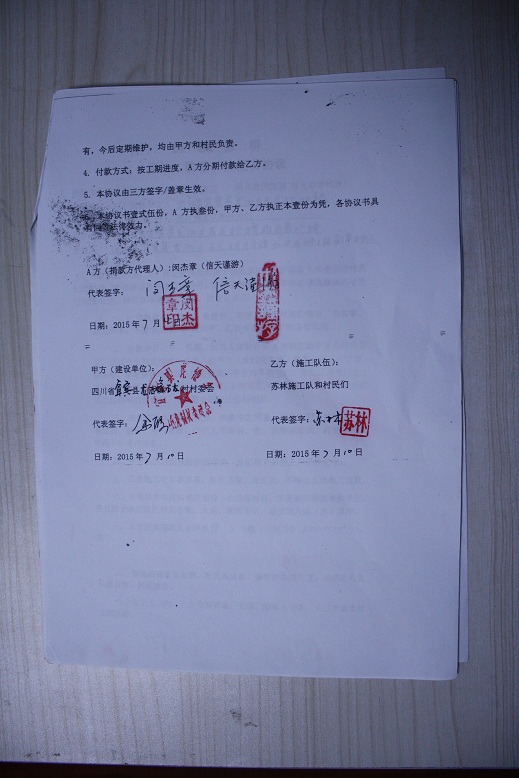 有，今后定期维护，均由甲方和村民负责。
4. 付款方式：按工期进度，A方分期付款给乙方。
5. 本协议由三方签字/盖章生效。
本协议书壹式伍份，A 方执叁份，甲方、乙方执正本壹份为凭，各协议书具
法律效力。
A方（捐款方代理人）:闵杰章（信天谨游）
代表签字： 闵杰章 信天谨游
章闵
印杰
日期：2015年 7 月
甲方（建设单位）：
四川省宜宾县 村村委会
代表签字：
日期：2015年 7 月 10 日
乙方（施工队伍）：
苏林施工队和村民们
代表签字：苏林 苏林
日期：2015年 7 月 10 日